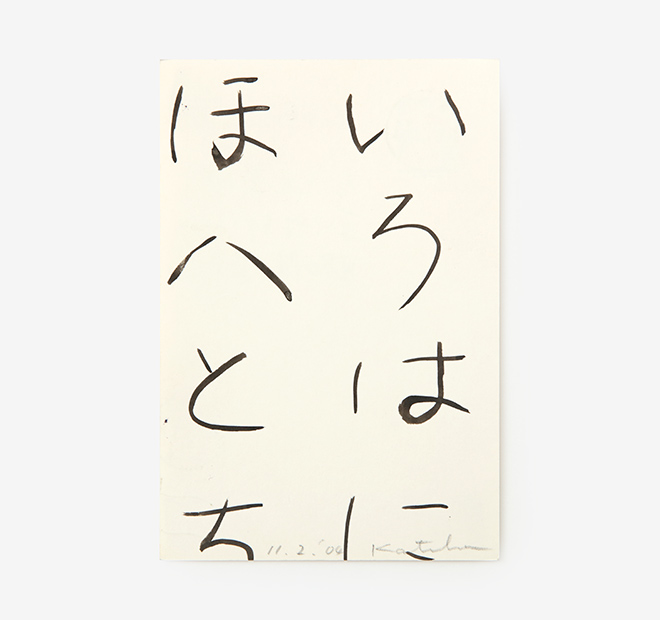 いろはに
ほへとち
11.2.'06